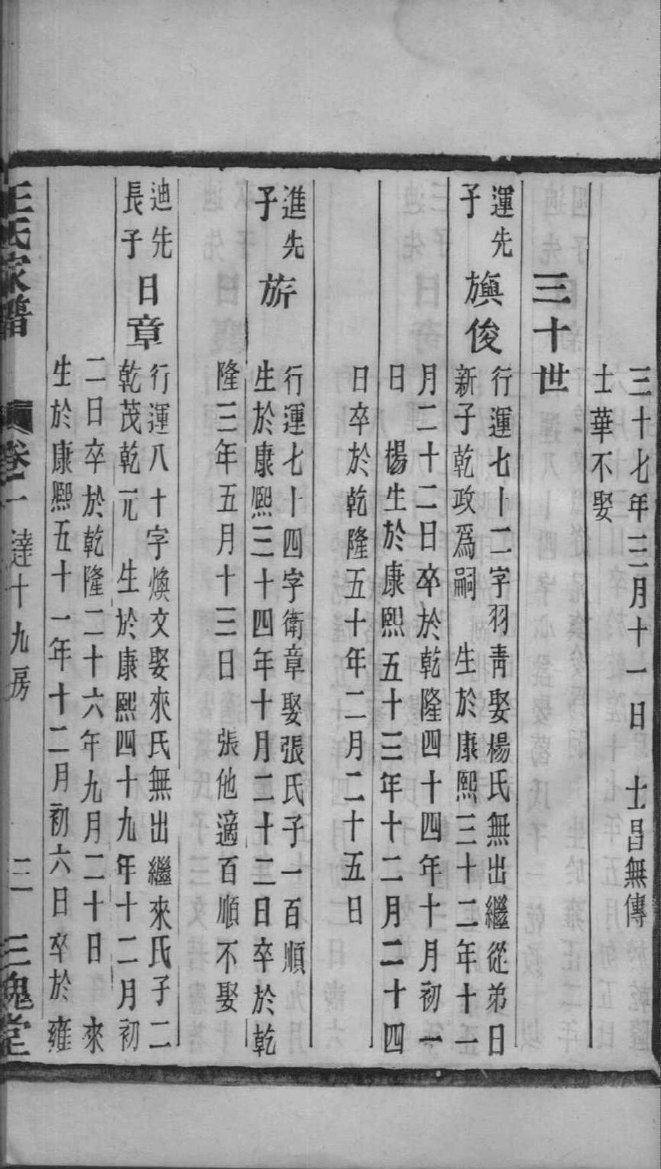 三十七年三月十一日　士昌無傳
士華不娶
三十世
運先
子
旟俊
行運七十二字羽青娶楊氏無出繼從弟日
新子乾政爲嗣　生於康熙三十二年十一
月二十二日卒於乾隆四十四年十月初一
日　楊生於康熙五十三年十二月二十四
日卒於乾隆五十年二月二十五日
進先
子
旂
行運七十四字衛章娶張氏子一百順
生於康熙三十四年十月二十二日卒於乾
隆三年五月十三日　張他適百順不娶
迪先
長子
日章
行運八十字煥文娶來氏無出繼來氏子二
乾茂乾元　生於康熙四十九年十二月初
二日卒於乾隆二十六年九月二十日　來
生於康熙五十一年十二月初六日卒於雍
王氏家譜　卷二　達十九房　三　三槐堂